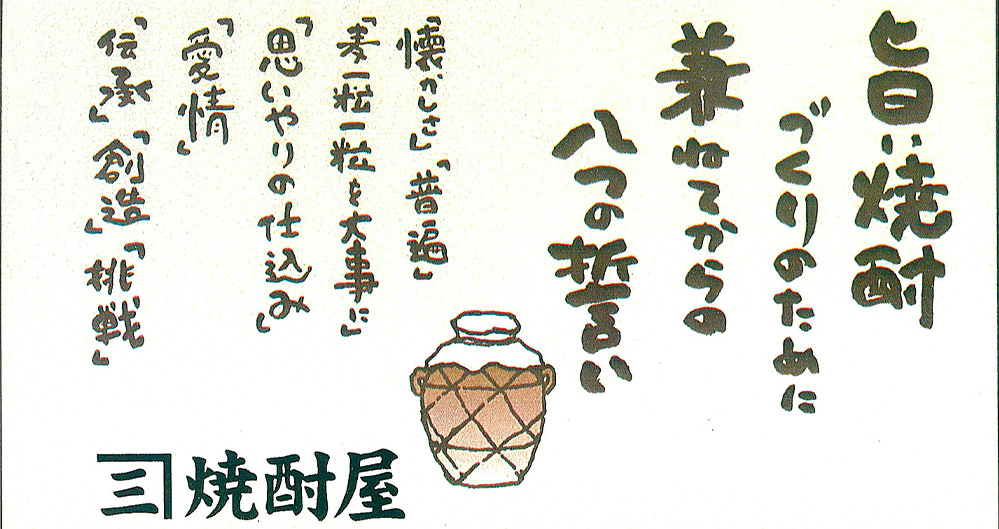 旨い焼酎
づくりのために
兼ねてからの
八つの誓い
「懐かしさ」「普遍」
「麦一粒一粒を大事に」
「思いやりの仕込み」
「愛情」
「伝承」「創造」「挑戦」
三 焼酎屋